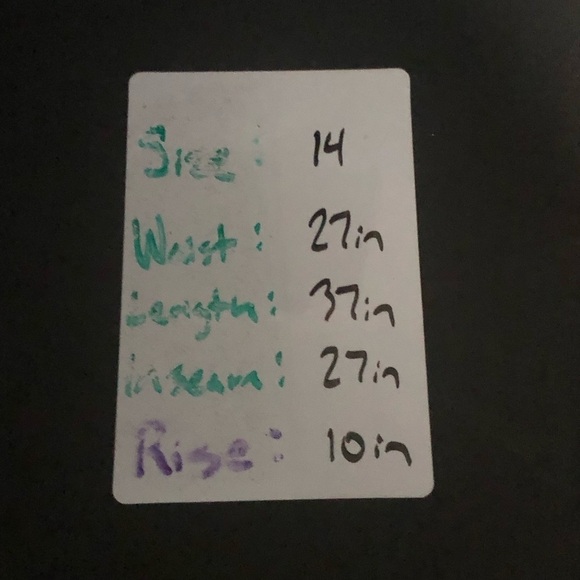 Size: 14
Waist: 27in
Length: 37in
inseam: 27in
Rise: 10in